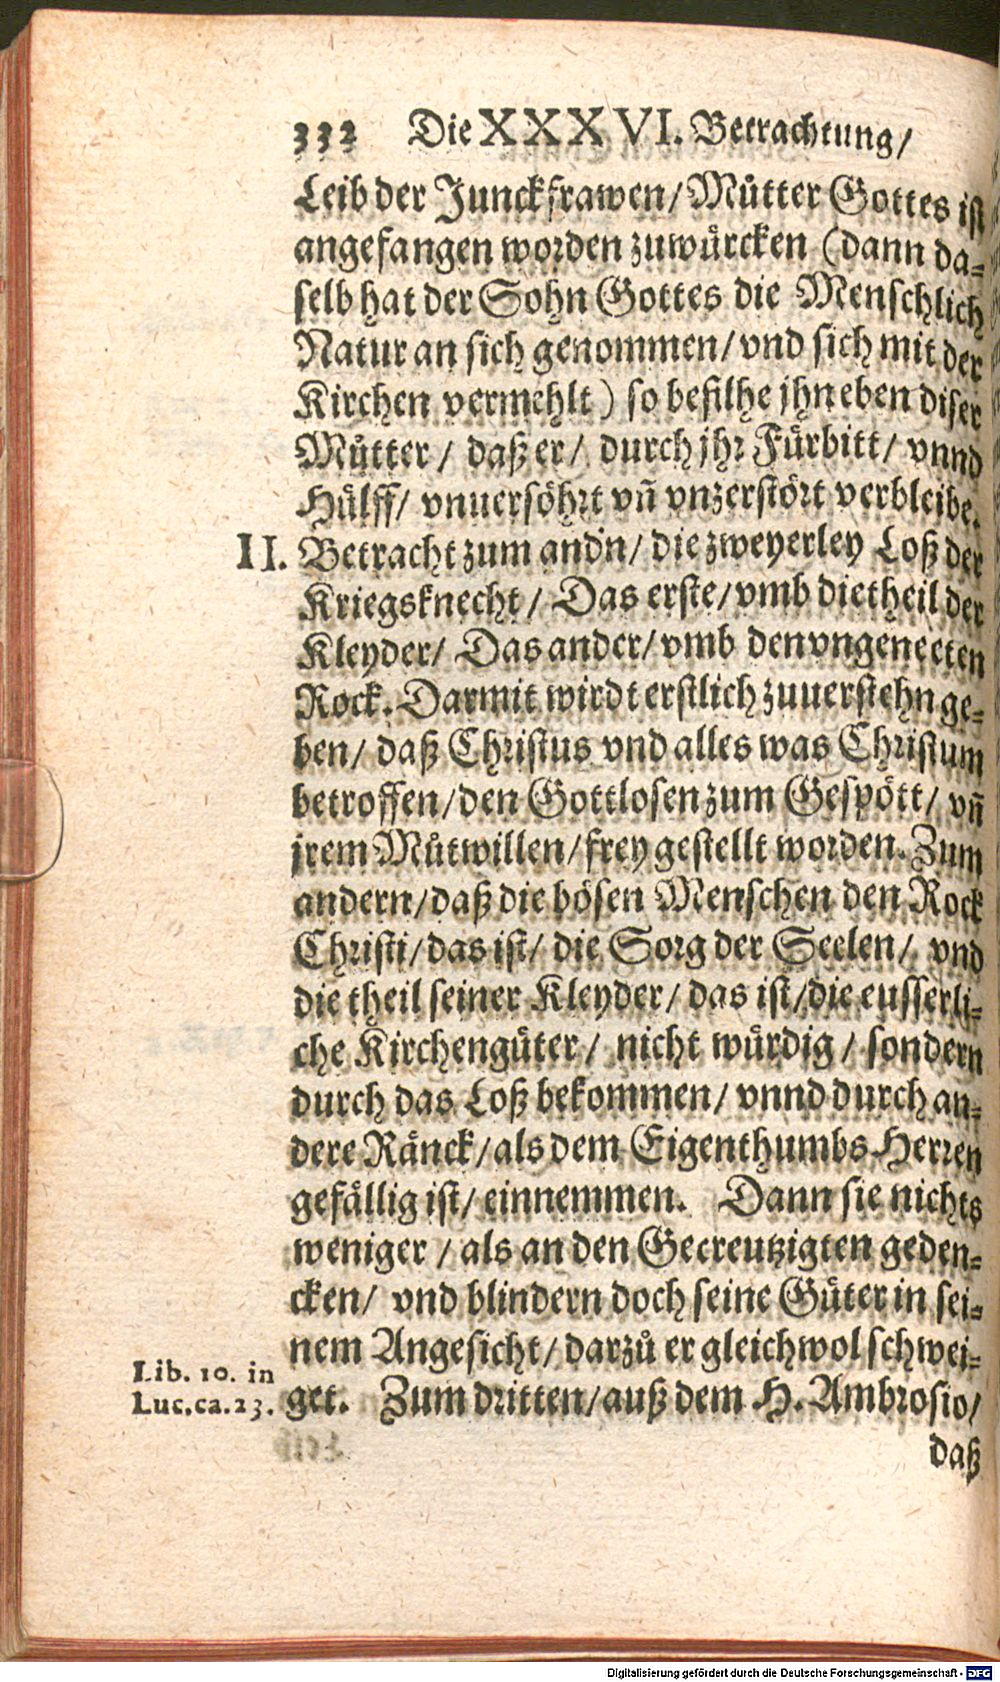 332 Die XXXVI. Betrachtung/
Leib der Junckfrawen/ Můtter Gottes ist
angefangen worden zuwürcken (dann da-
selb hat der Sohn Gottes die Menschlich
Natur an sich genommen/ vnd sich mit der
Kirchen vermehlt) so befilhe jhn eben diser
Můtter/ daß er/ durch jhr Fürbitt/ vnnd
Hülff/ vnuersöhrt vñ vnzerstört verbleibe.
II. Betracht zum andn/ die zweyerley Loß der
Kriegsknecht/ Das erste/ vmb die theil der
Kleyder/ Das ander/ vmb den vngeneeten
Rock. Darmit wirdt erstlich zuuerstehn ge-
ben/ daß Christus vnd alles was Christum
betroffen/ den Gottlosen zum Gespött/ vñ
jrem Můtwillen/ frey gestellt worden. Zum
andern/ daß die bösen Menschen den Rock
Christi/ das ist/ die Sorg der Seelen/ vnd
die theil seiner Kleyder/ das ist/ die eusserli-
che Kirchengüter/ nicht würdig/ sondern
durch das Loß bekommen/ vnnd durch an-
dere Ränck/ als dem Eigenthumbs Herren
gefällig ist/ einnemmen. Dann sie nichts
weniger/ als an den Gecreutzigten geden-
cken/ vnd blindern doch seine Güter in sei-
nem Angesicht/ darzů er gleichwol schwei-
get. Zum dritten/ auß dem H. Ambrosio/
Lib. 10. in
Luc. ca. 23.
daß
Digitalisierung gefördert durch die Deutsche Forschungsgemeinschaft - DFG